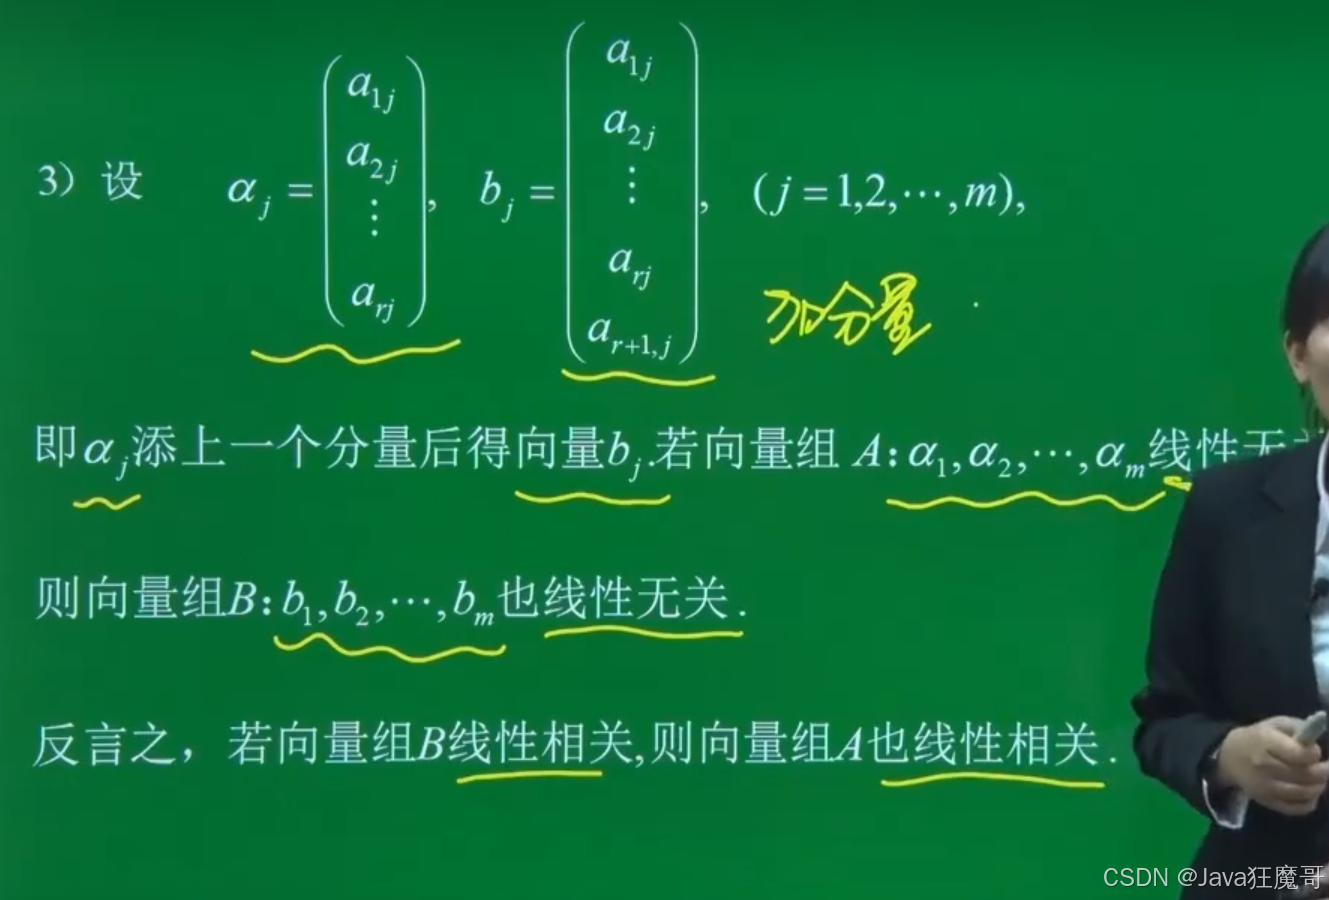 3）设 αⱼ = (a₁ⱼ a₂ⱼ ⋮ aᵣⱼ), bⱼ = (a₁ⱼ a₂ⱼ ⋮ aᵣⱼ aᵣ₊₁,ⱼ), (j = 1,2,⋯,m),
加分量
即αⱼ添上一个分量后得向量bⱼ.若向量组 A:α₁,α₂,⋯,αₘ线性无
则向量组B:b₁,b₂,⋯,bₘ也线性无关.
反言之，若向量组B线性相关,则向量组A也线性相关.
CSDN @Java狂魔哥